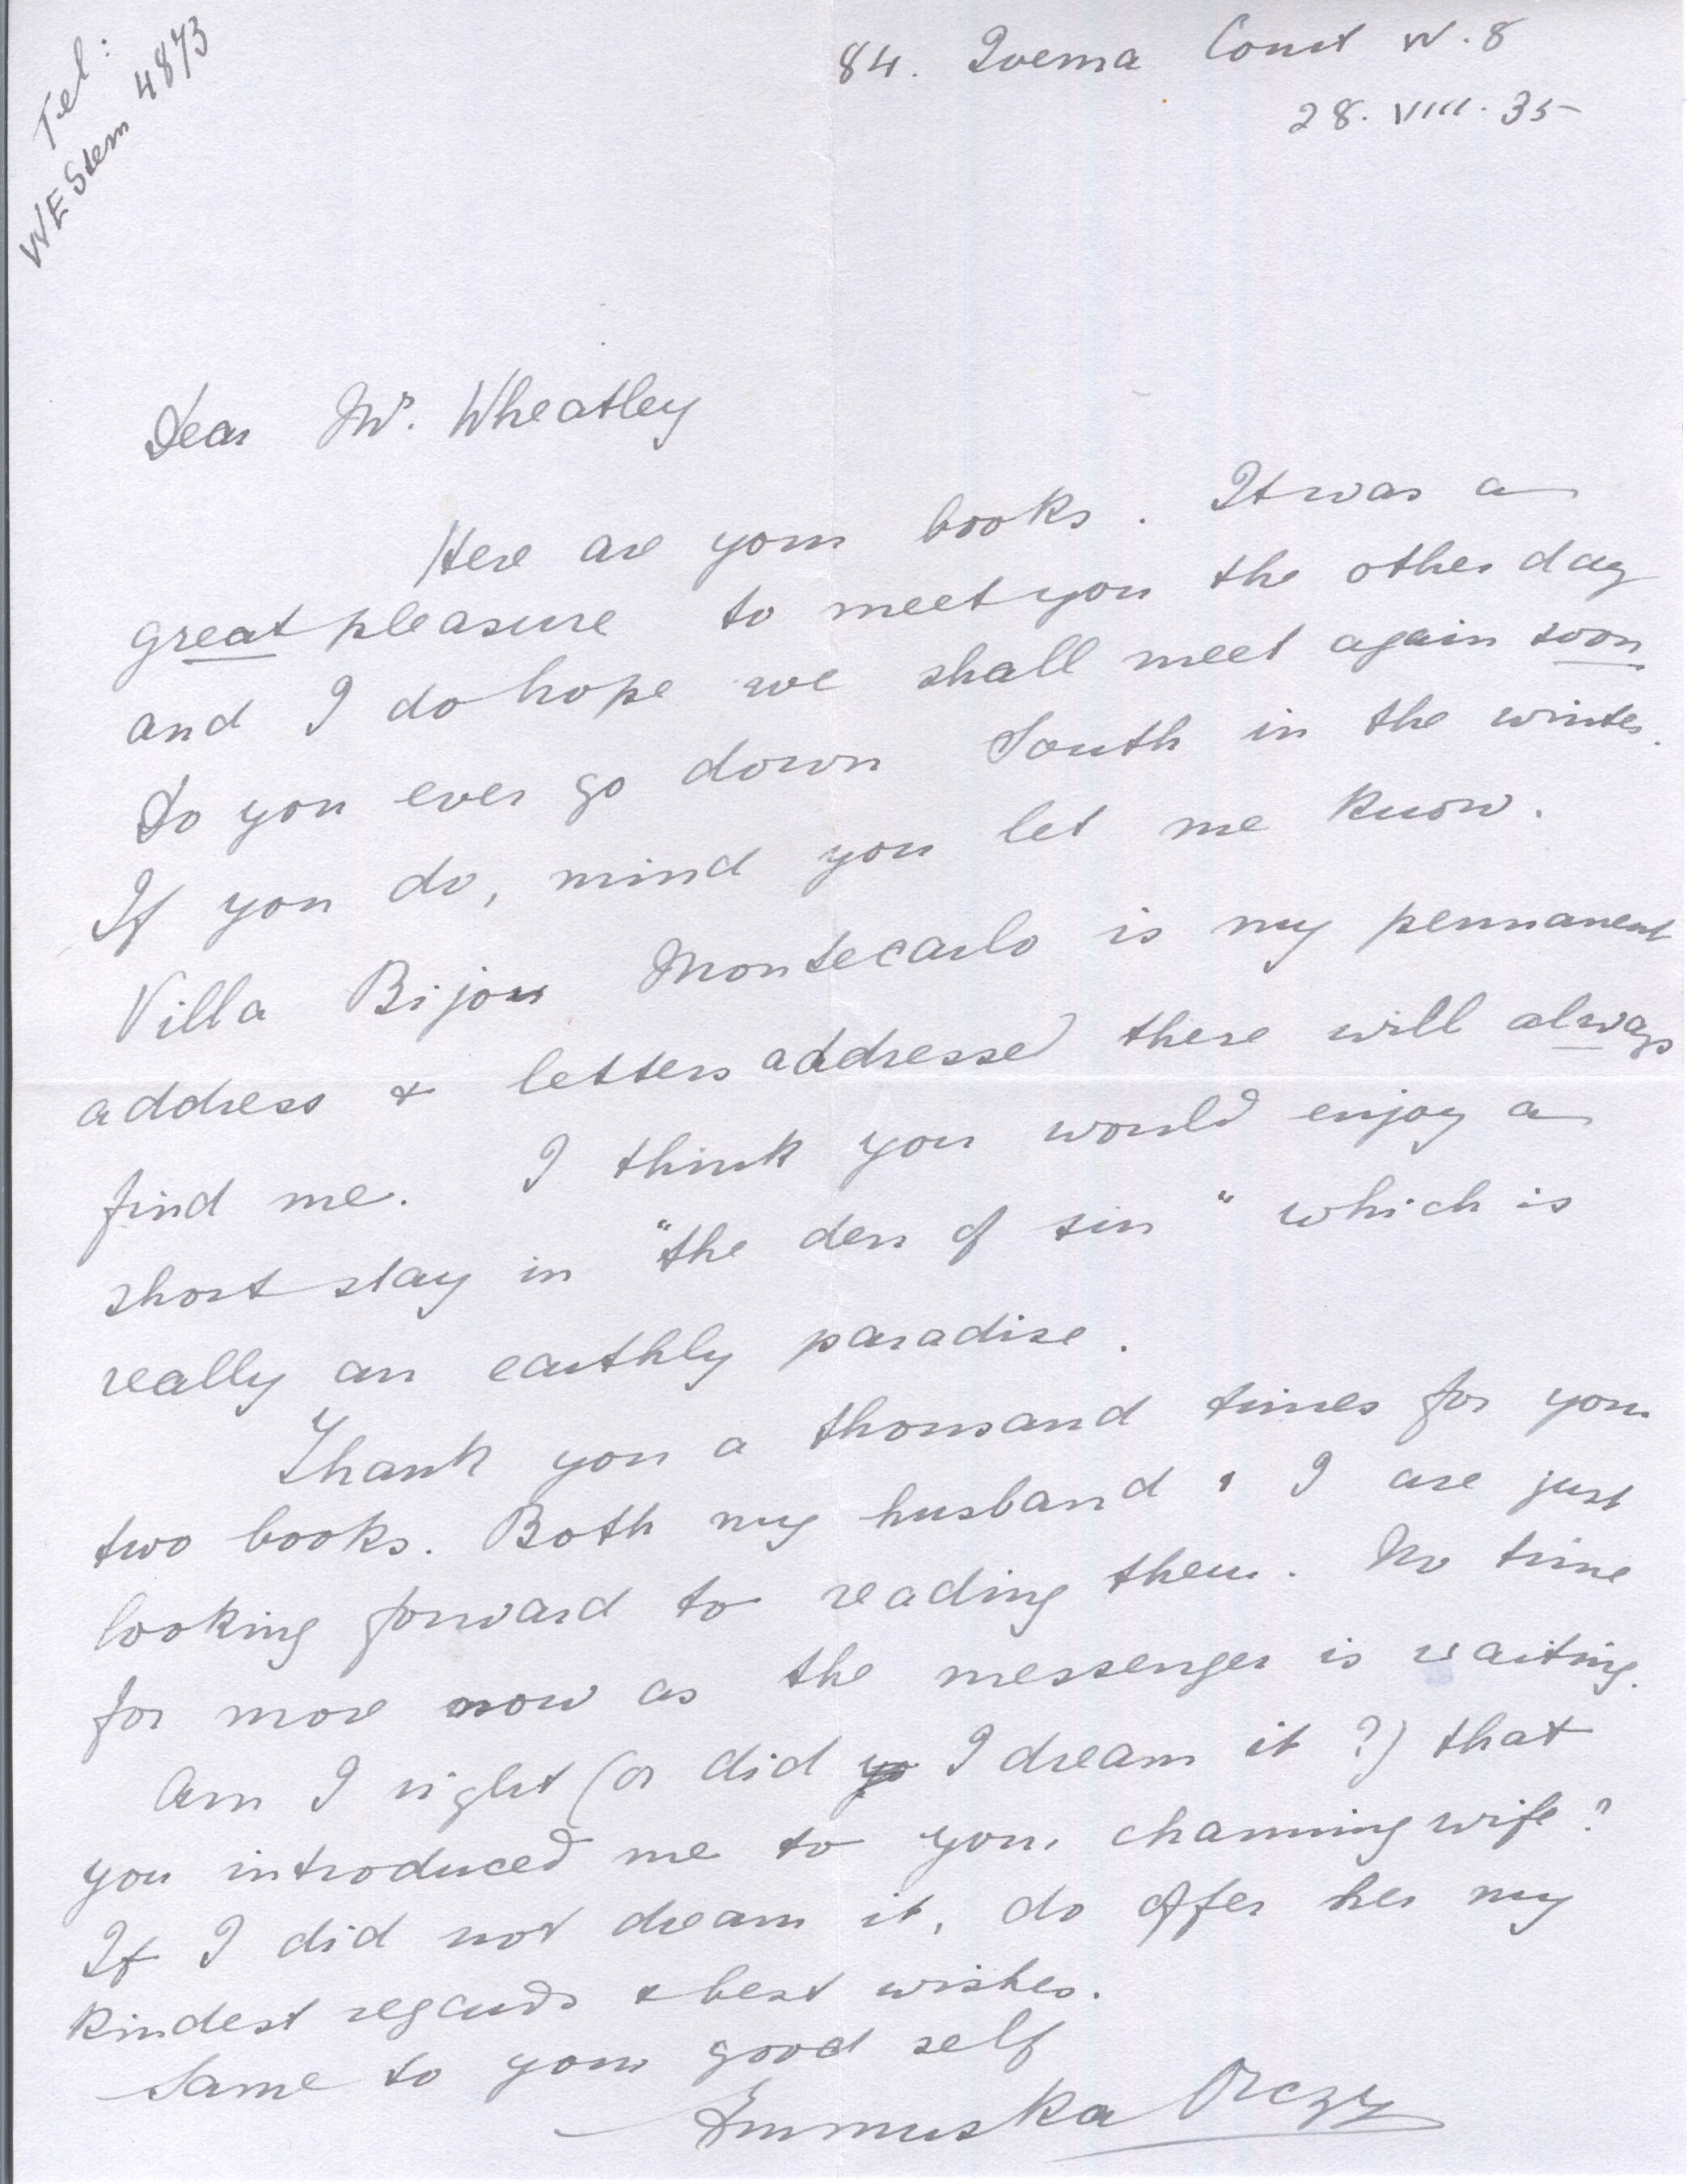 Tel:
WEStern 4873
84. Iverna Court W.8
28. VIII. 35
Dear Mr. Wheatley
Here are your books. It was a
great pleasure to meet you the other day
and I do hope we shall meet again soon.
Do you ever go down South in the winter.
If you do, mind you let me know.
Villa Bijou Montecarlo is my permanent
address & letters addressed there will always
find me. I think you would enjoy a
short stay in "the den of sin" which is
really an earthly paradise.
Thank you a thousand times for your
two books. Both my husband & I are just
looking forward to reading them. No time
for more now as the messenger is waiting.
Am I right (or did yo I dream it?) that
you introduced me to your charming wife?
If I did not dream it, do offer her my
kindest regards & best wishes.
Same to your good self
Emmuska Orczy